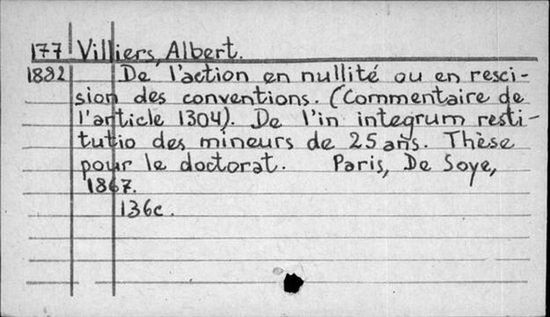 177 Villiers, Albert.
1882 De l'action en nullité ou en resci-
sion des conventions. (Commentaire de
l'article 1304). De l'in integrum resti-
tutio des mineurs de 25 ans. Thèse
pour le doctorat. Paris, De Soye,
1867.
136c.